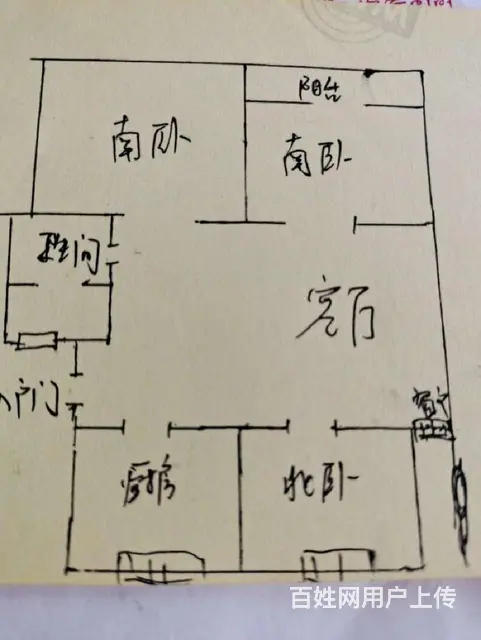 阳台
南卧
南卧
卫生间
客厅
入户门
窗户
厨房
北卧
百姓网用户上传